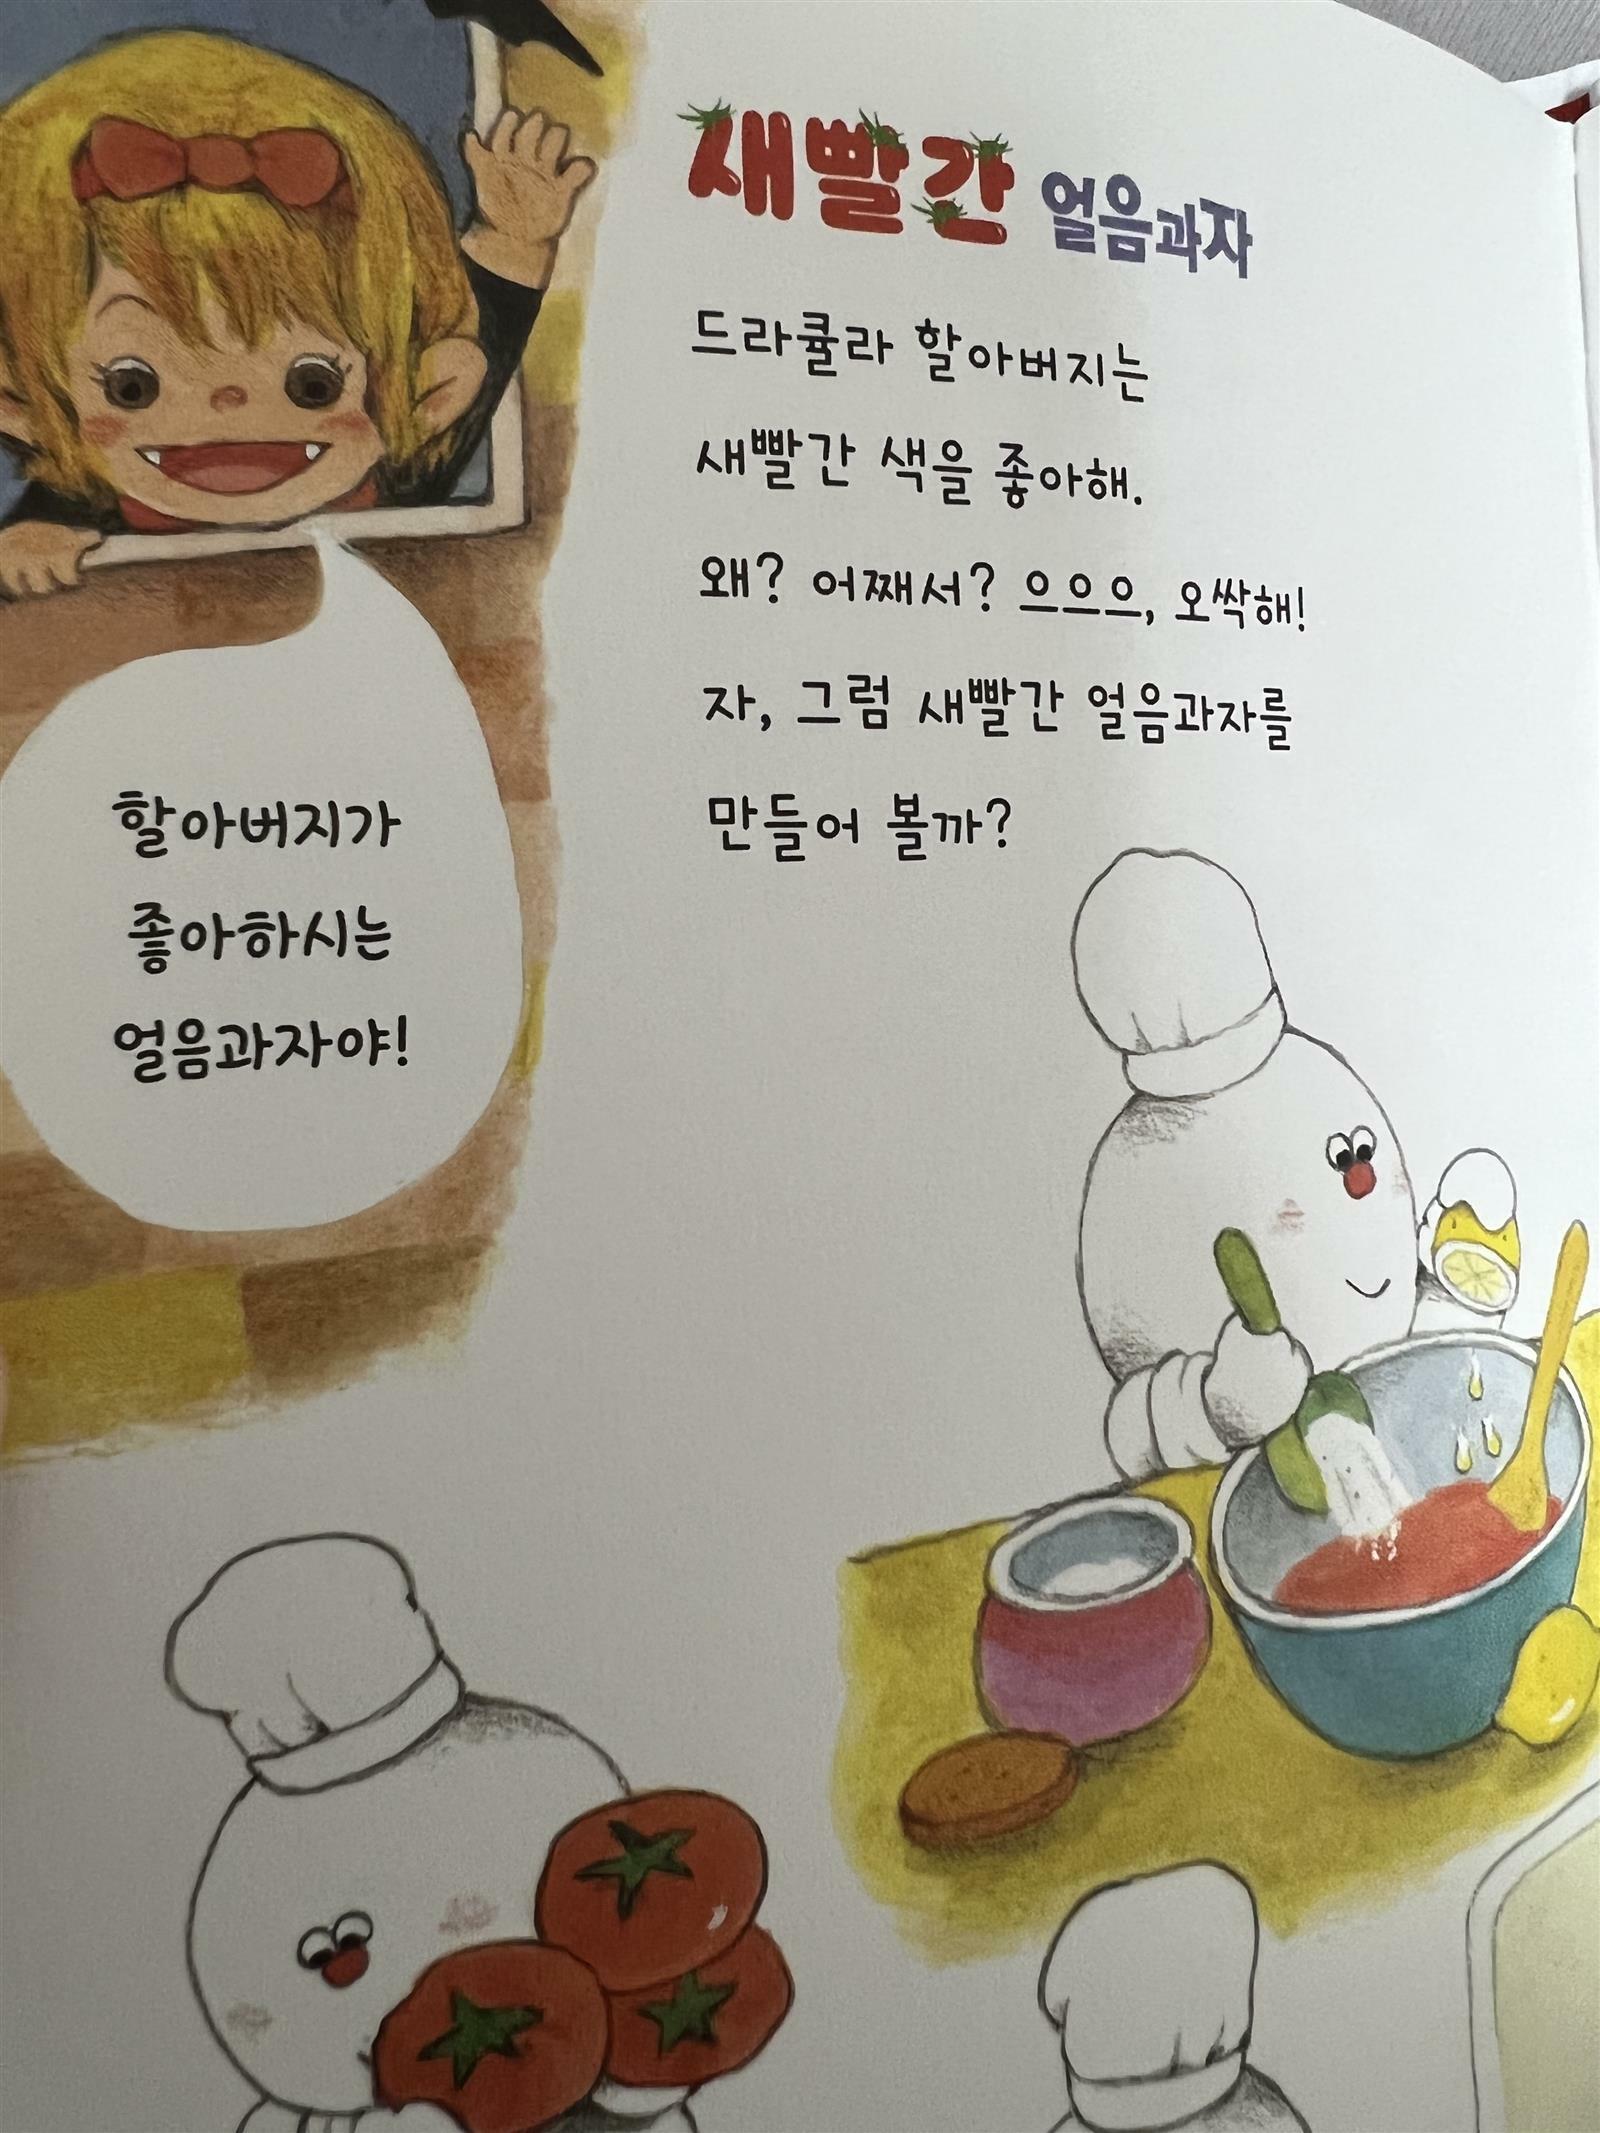 새빨간 얼음과자
드라큘라 할아버지는
새빨간 색을 좋아해.
왜? 어째서? 으으으, 오싹해!
자, 그럼 새빨간 얼음과자를
만들어 볼까?
할아버지가
좋아하시는
얼음과자야!